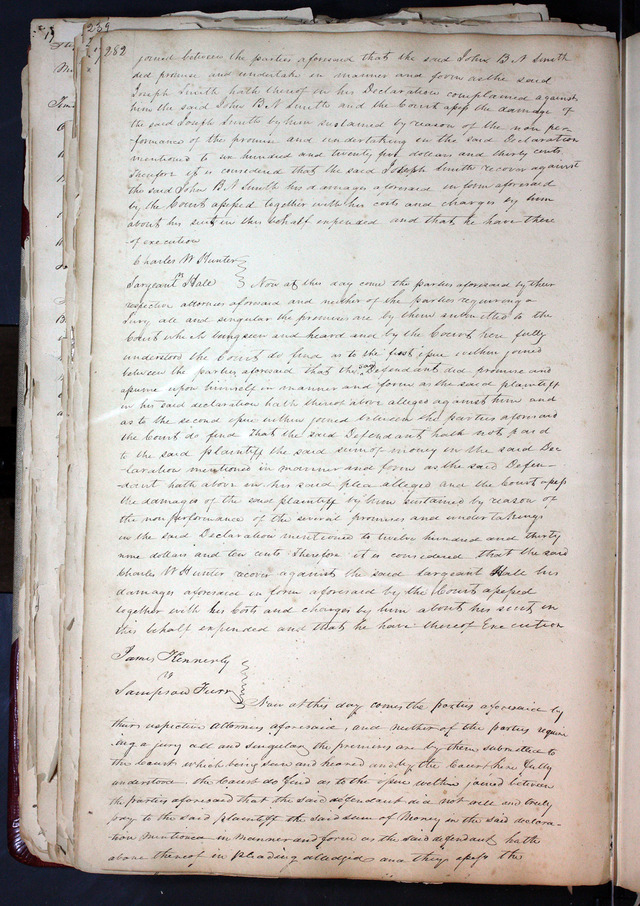 19
289
282
joined between the parties aforesaid that the said John B N Smith
did promise and undertake in manner and form as the said
Joseph Smith hath thereof in his Declaration complained against
him the said John B N Smith and the Court assess the damage of
the said Joseph Smith by him sustained by reason of the non per
formance of the promise and undertaking in the said Declaration
mentioned to hundred and twenty five dollars and thirty cents
Therefore it is considered that the said Joseph Smith recover against
the said John B N Smith his damages aforesaid in form aforesaid
by the Court assessed together with his costs and charges by him
about his suit in this behalf expended and that he have there
of execution
Charles W Hunter
Sargeant Hale Now at this day come the parties aforesaid by their
respective attornies aforesaid and neither of the parties requiring a
Jury all and singular the premises are by them submitted to the
Court which being seen and heard and by the Court here fully
understood the Court do find as to the first issue within joined
between the parties aforesaid that the said Defendant did promise and
assume upon himself in manner and form as the said plaintiff
in his said declaration hath thereof above alleged against him and
as to the second issue within joined between the parties aforesaid
the Court do find that the said Defendant hath not paid
to the said plaintiff the said sum of money in the said Dec
laration mentioned in manner and form as the said Defen-
dant hath above in his said plea alleged and the Court assess
the damages of the said plaintiff by him sustained by reason of
the non performance of the several promises and undertakings
in the said Declaration mentioned to twelve hundred and thirty
nine dollars and ten cents Therefore it is considered that the said
Charles W Hunter recover against the said Sargeant Hale his
damages aforesaid in form aforesaid by the Court assessed
together with his Costs and charges by him about his suit in
this behalf expended and that he have thereof Execution
James Kennerly
vs
Sampson Furr
Now at this day comes the parties aforesaid by
their respective attorneys aforesaid, and neither of the parties require
ing a jury all and singular the premises are by them submitted to
the Court which being seen and heard and by the Court here fully
understood the Court do find as to the issue within joined between
the parties aforesaid that the said defendant did not well and truly
pay to the said plaintiff the said sum of Money in the said declara-
tion mentioned in manner and form as the said defendant hath
above thereof in pleading alledged and they assess the